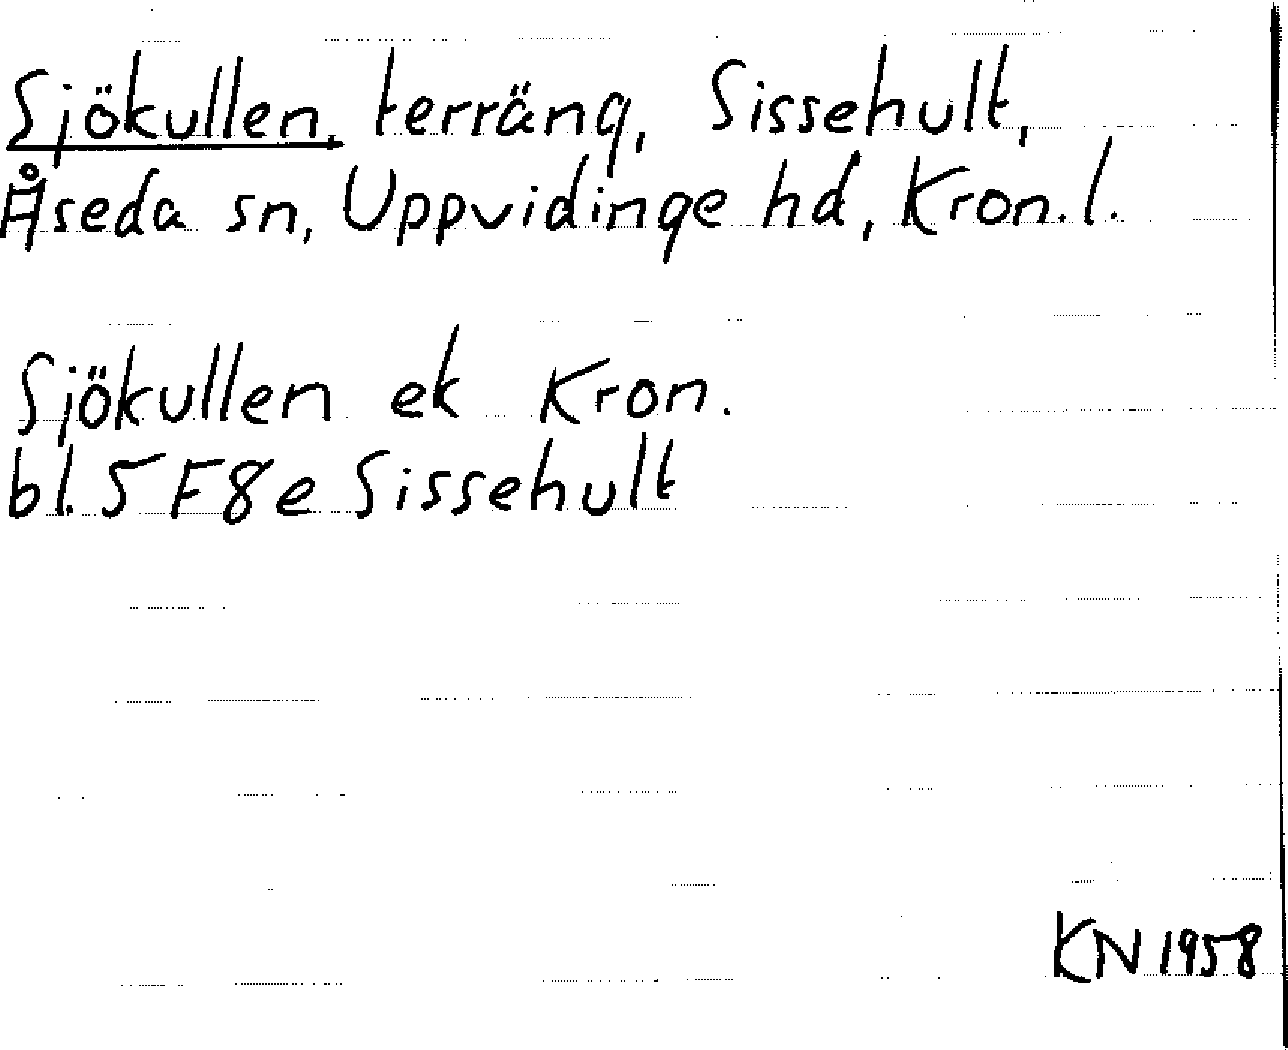 Sjökullen, terräng, Sissehult,
Åseda sn, Uppvidinge hd, Kron. l.
Sjökullen ek Kron.
bl. 5F8e Sissehult
KN 1958